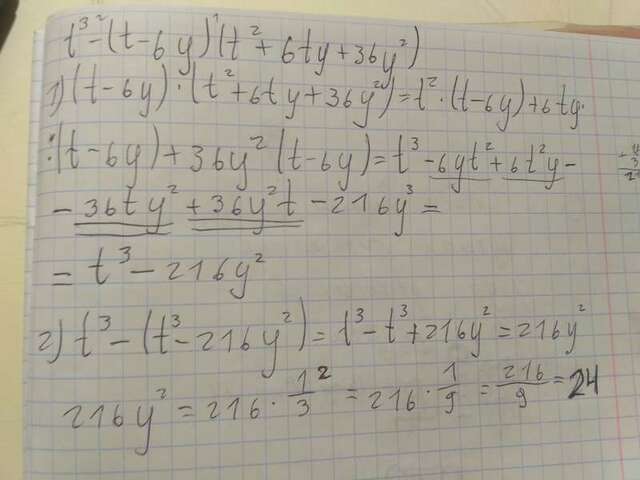 t³ - (t - 6y)(t² + 6ty + 36y²)
1) (t - 6y) · (t² + 6ty + 36y²) = t² · (t - 6y) + 6ty ·
· (t - 6y) + 36y² (t - 6y) = t³ - 6yt² + 6t²y -
- 36ty² + 36y²t - 216y³ =
= t³ - 216y²
2) t³ - (t³ - 216y²) = t³ - t³ + 216y² = 216y²
216y² = 216 · 1/3² = 216 · 1/9 = 216/9 = 24